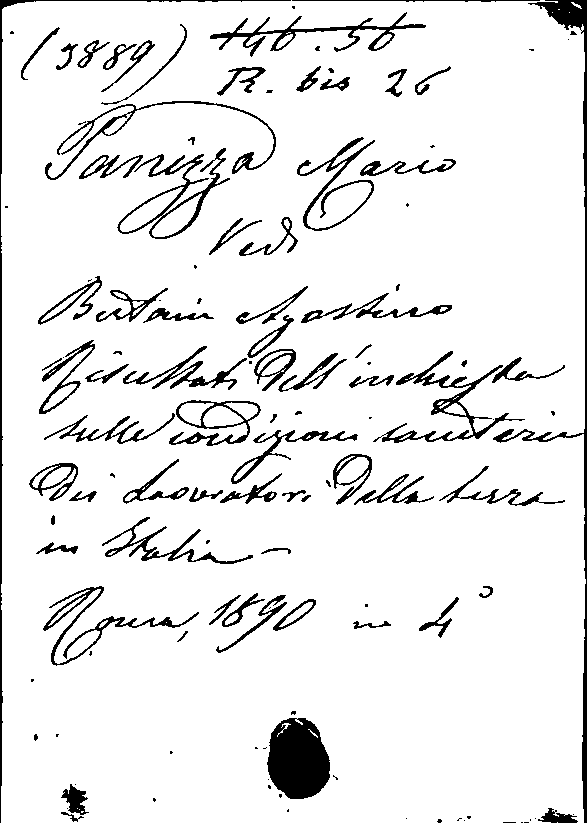 (3889) 146.56
R. bis 26
Panizza Mario
Vedi
Bertani Agostino
Risultati dell'inchiesta
sulle condizioni sanitarie
dei lavoratori della terra
in Italia —
Roma, 1890 in 4°